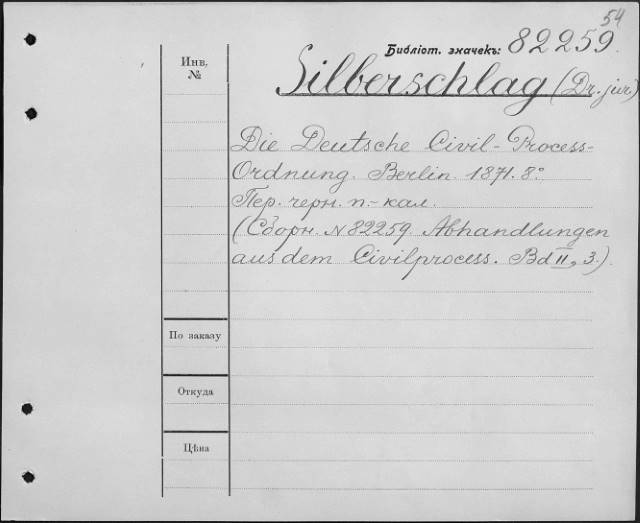 54
Библiот. значекъ: 82259.
Инв.
№
Silberschlag (Dr. jur.)
Die Deutsche Civil-Process-
Ordnung. Berlin. 1871. 8º
Пер. черн. п.-кал.
(Сборн. № 82259. Abhandlungen
aus dem Civilprocess. Bd II, 3.)
По заказу
Откуда
Цѣна